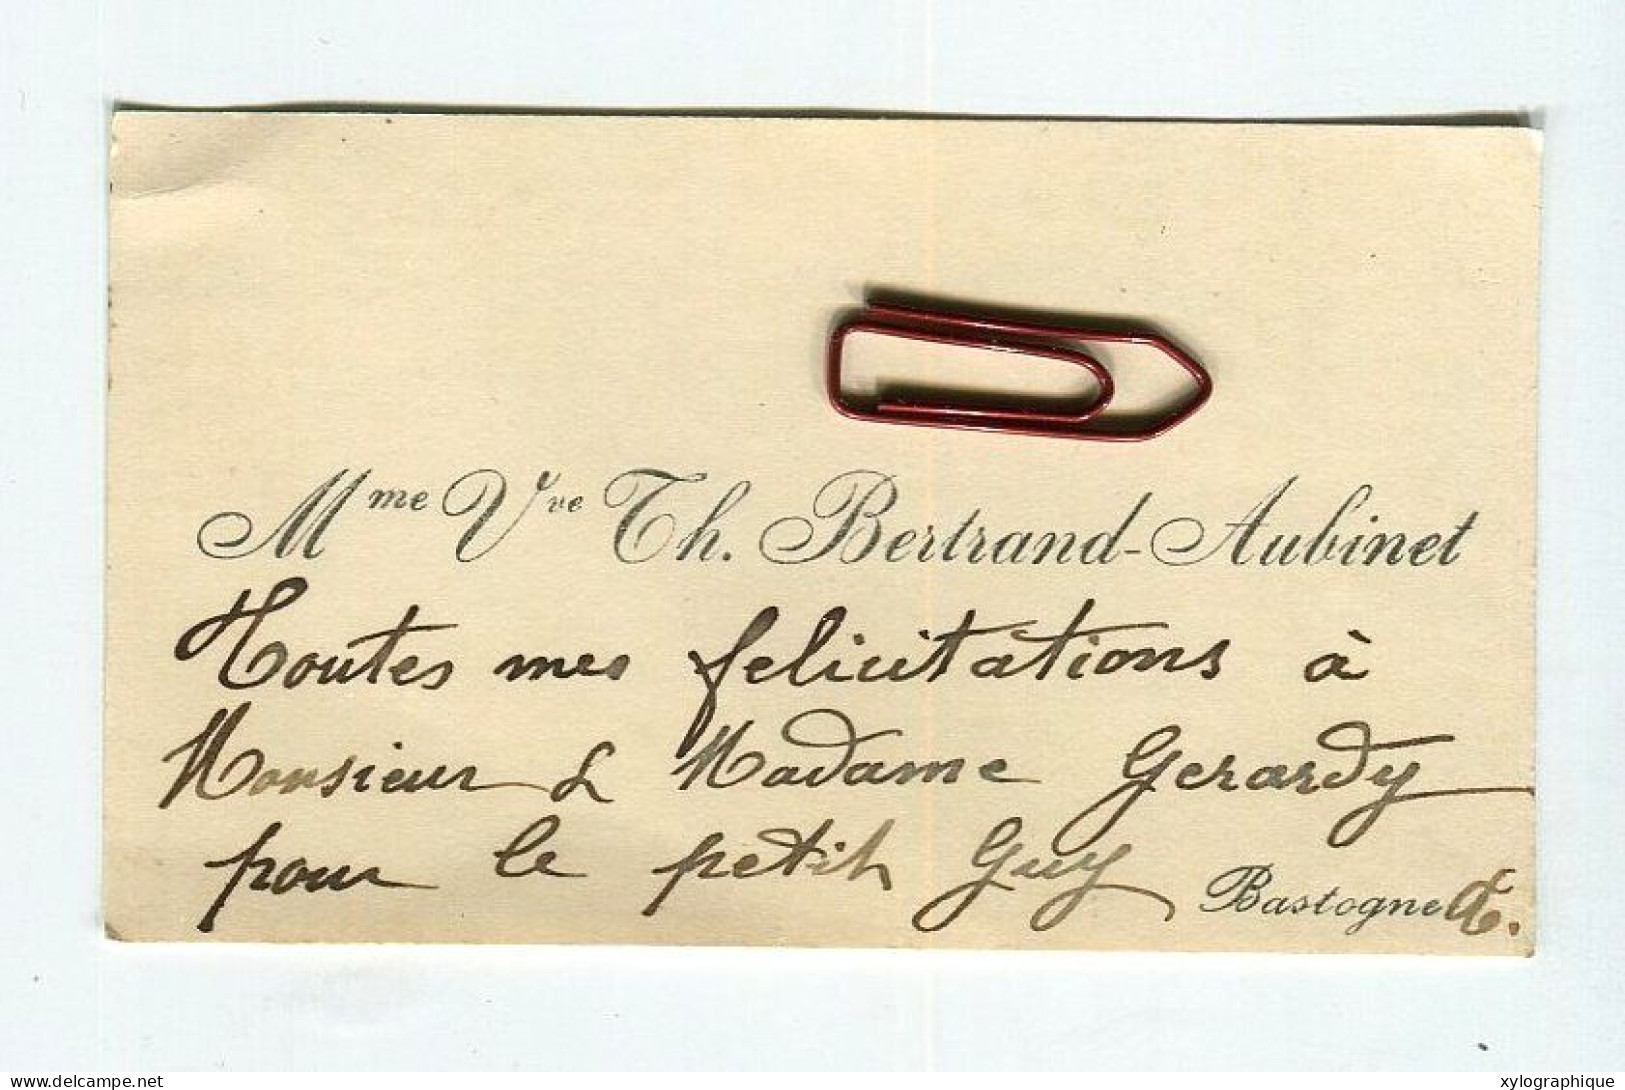 Mme Vve Th. Bertrand-Aubinet
Toutes mes felicitations à
Monsieur & Madame Gerardy
pour le petit Guy
Bastogne
delcampe.net
xylographique